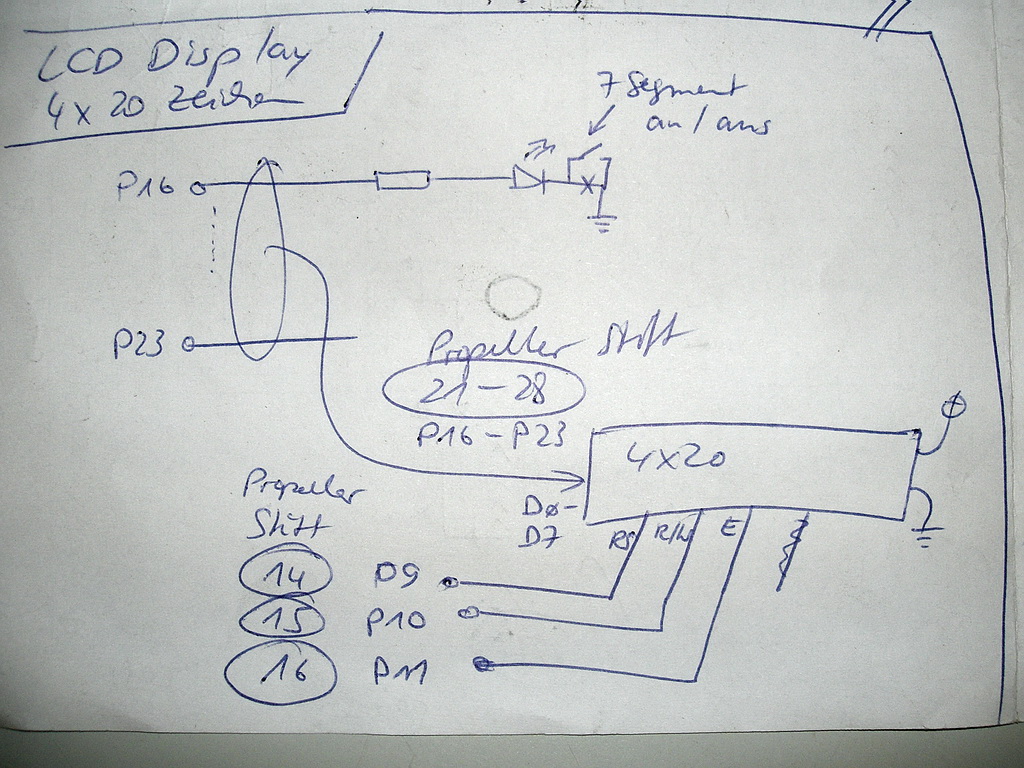 LCD Display
4 x 20 Zeichen
7 Segment
an / aus
P16
P23
Propeller Stift
21 – 28
P16 – P23
4x20
Propeller
Stift
DØ-
D7
RS R/W E
14 P9
15 P10
16 P11